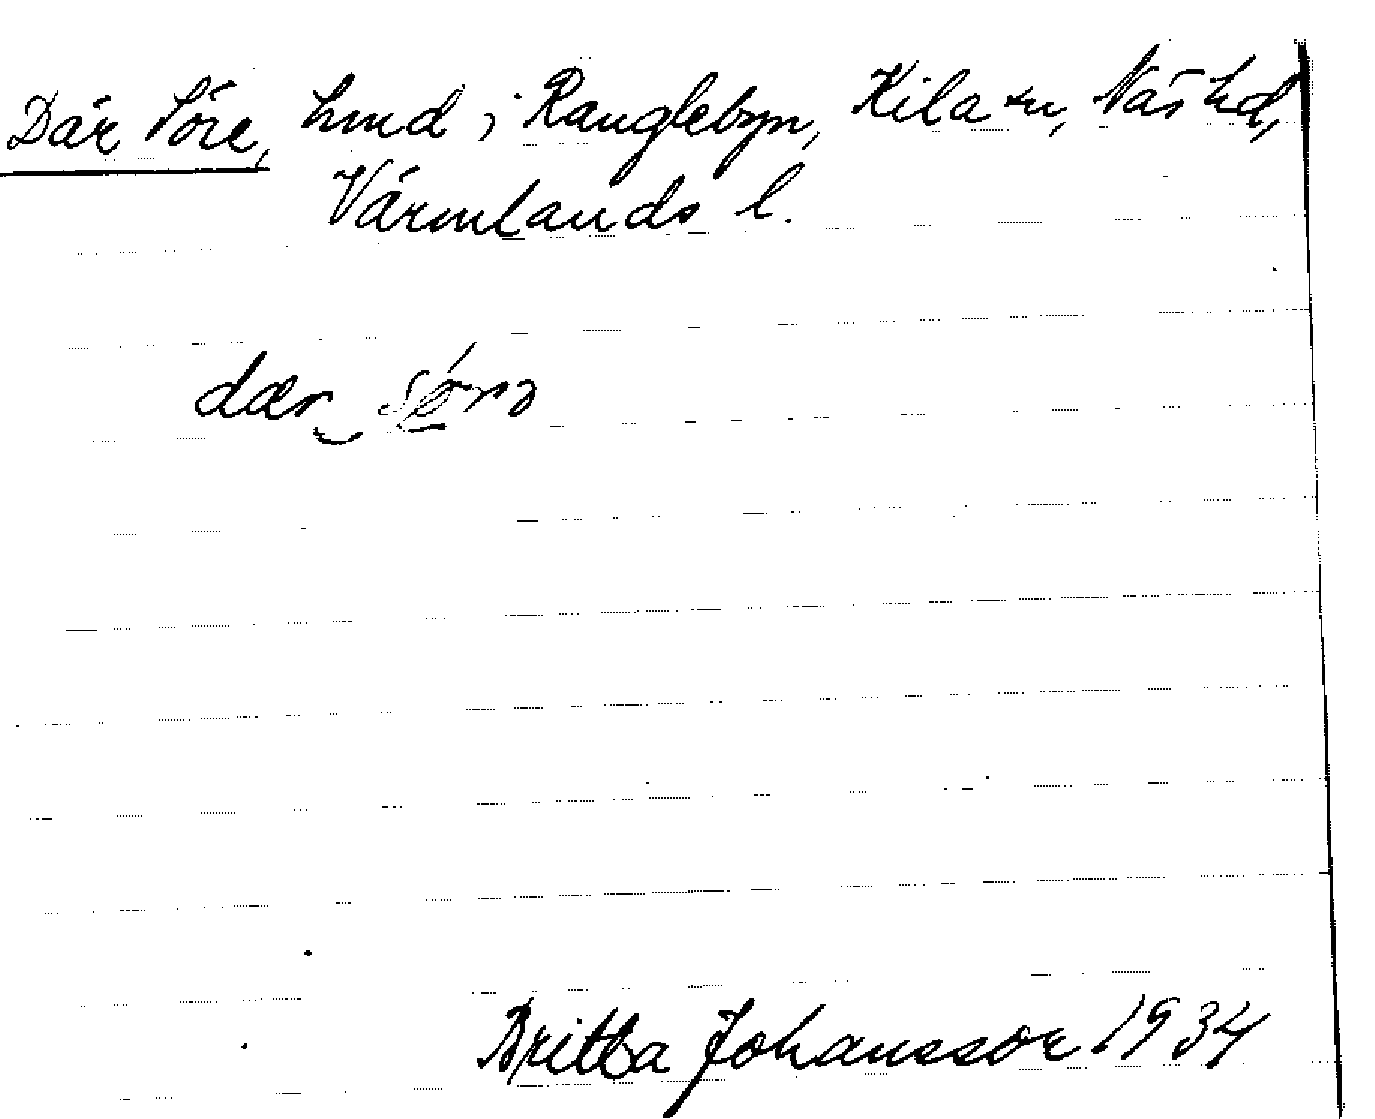 Där Söre, hmd i Ranglebyn, Kila sn, Näs hd,
Värmlands l.
dær
Britta Johansson 1934